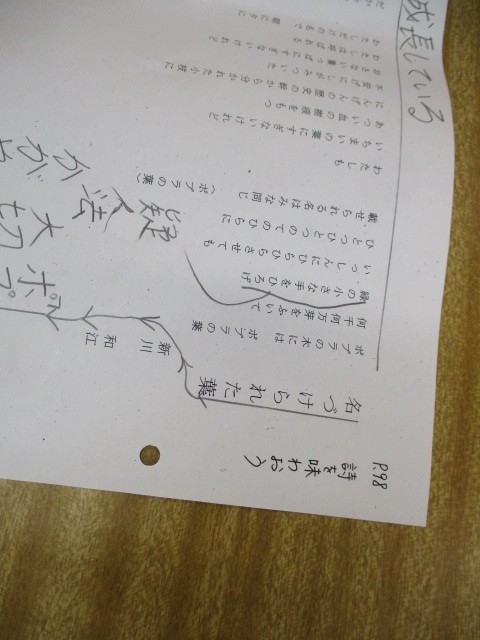 P.98 詩を味わおう
名づけられた葉
新川 和江
ポプラの木には ポプラの葉
何千何万芽をふいて
緑の小さな手をひろげ
いっしんにひらひらさせても
ひとつひとつのてのひらに
載せられる名はみな同じ 〈ポプラの葉〉
擬人法
わたしも
いちまいの葉にすぎないけれど
あつい血の樹液をもつ
にんげんの歴史の幹から分かれた小枝に
不安げにしがみついた
おさない葉っぱにすぎないけれど
わたしは呼ばれる
わたしだけの名で 朝に夕に
成長している